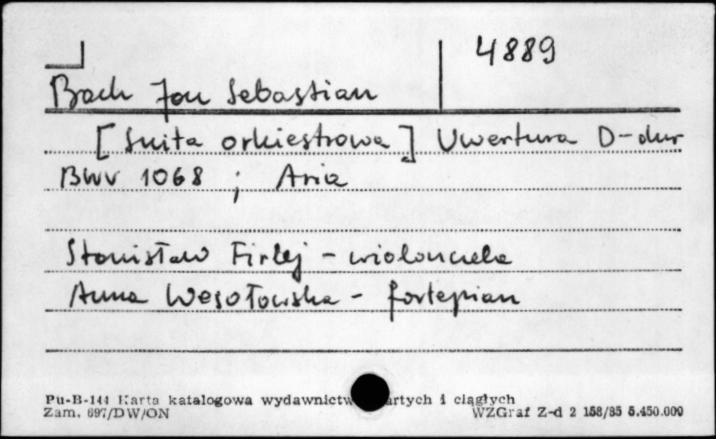 4889
Bach Jan Sebastian
[Suita orkiestrowa] Uwertura D-dur
BWV 1068 ; Aria
Stanisław Firlej - wiolonczela
Anna Wesołowska - fortepian
Pu-B-144 Karta katalogowa wydawnictw artych i ciągłych
Zam. 697/DW/ON WZGraf Z-d 2 158/85 5.450.000